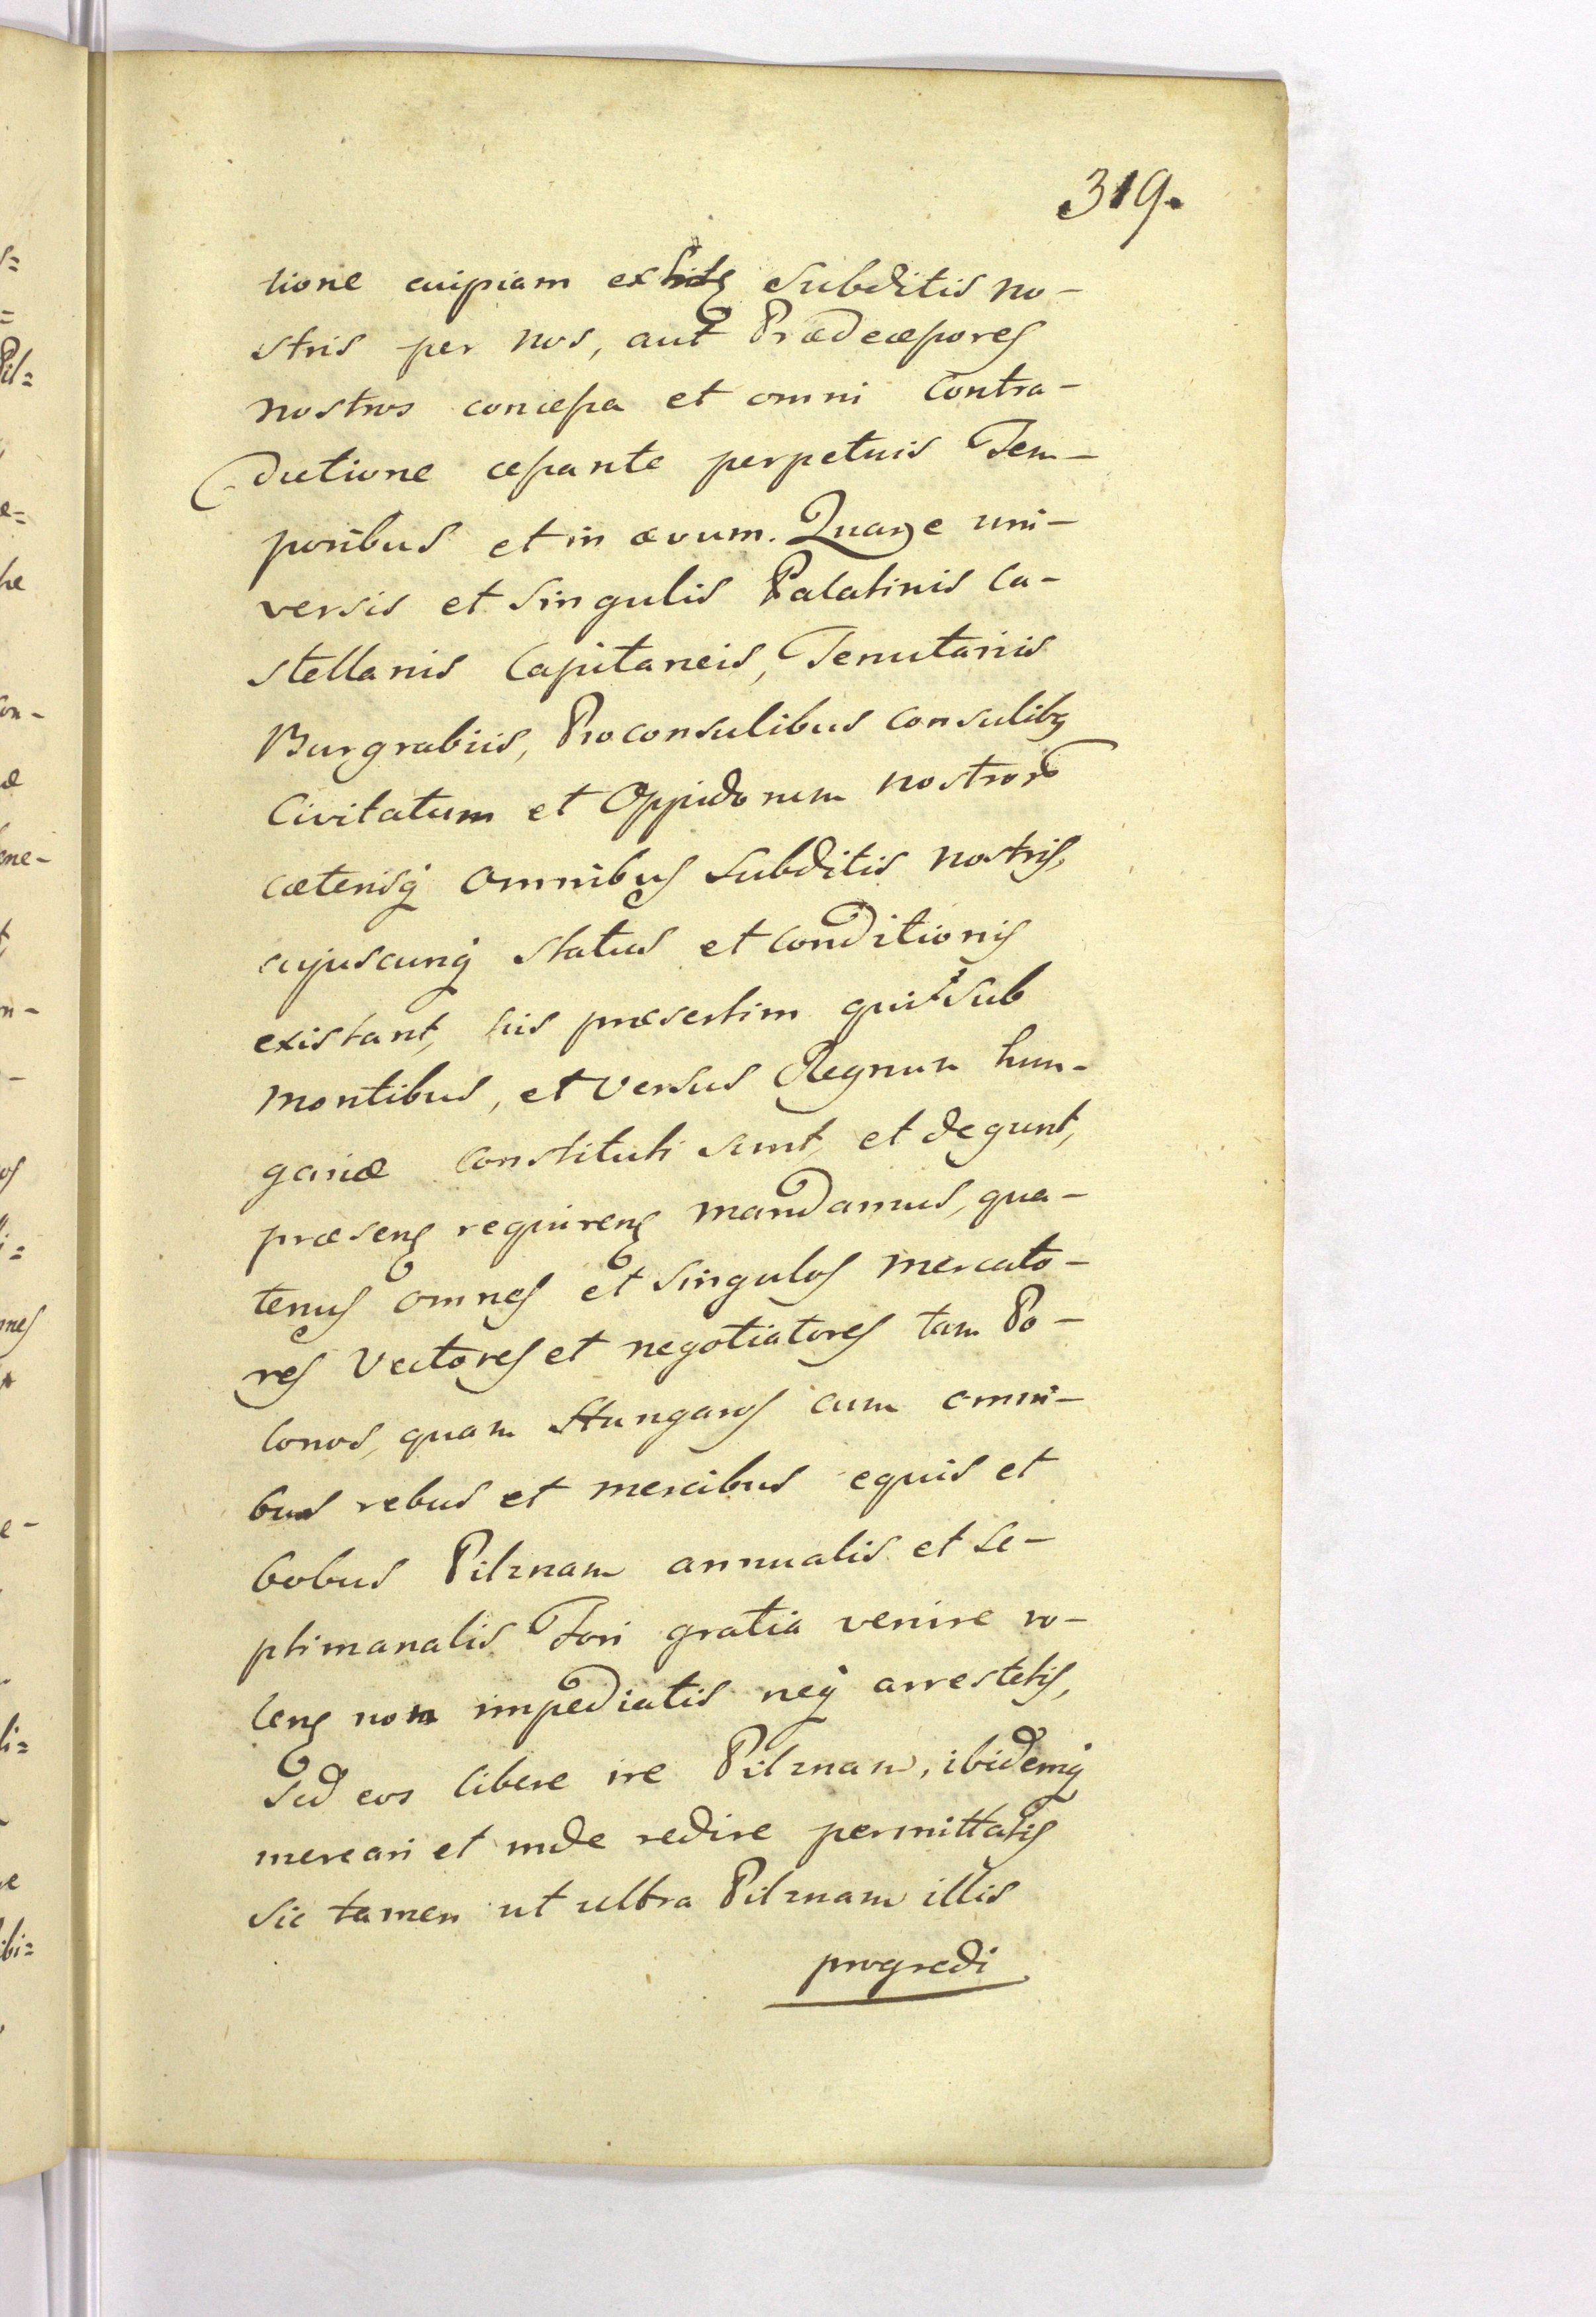 319.
tione cuipiam ex hisq Subditis no-
stris per nos, aut Prædecessores
nostros concessa et omni Contra-
dictione cessante perpetuis Tem-
poribus et in ævum. Quare uni-
versis et singulis Palatinis Ca-
stellanis Capitaneis, Tenutariis
Burgrabiis, Proconsulibus Consulibq
Civitatum et Oppidorum nostror
cæterisq omnibus Subditis nostris,
cujuscunq status et Conditionis
existant, his præsertim qui Sub
montibus, et Versus Regnum hun-
gariæ Constituti sunt, et degunt,
præsens requirens mandamus, qua-
tenus omnes et singulos mercato-
res Vectores et negotiatores tam Po-
lonos, quam Hungaros cum omni-
bus rebus et mercibus equis et
bobus Pilznam annualis et se-
ptimanalis Fori gratia venire vo-
lens non impediatis neq arrestetis,
Sed eos libere ire Pilznam, ibidemq
mercari et inde redire permittatis
sic tamen ut ultra Pilznam illis
progredi